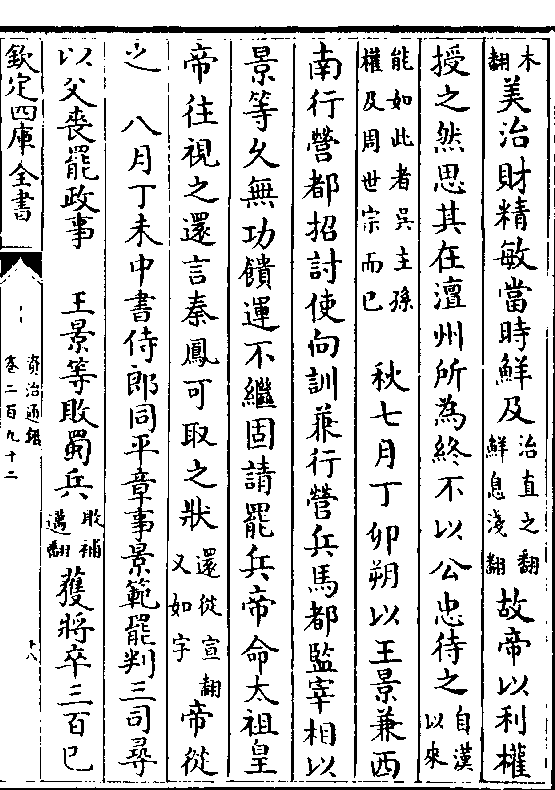 木翻美治財精敏當時鮮及治直之翻鮮息淺翻故帝以利權
授之然思其在澶州所為終不以公忠待之自漢以來
能如此者吳主孫權及周世宗而已 秋七月丁卯朔以王景兼西
南行營都招討使向訓兼行營兵馬都監宰相以
景等久無功饋運不繼固請罷兵帝命太祖皇
帝往視之還言秦鳳可取之狀還從宣翻又如字帝從
之 八月丁未中書侍郎同平章事景範罷判三司尋
以父喪罷政事 王景等敗蜀兵敗補邁翻獲將卒三百已
欽定四庫全書
資治通鑑
卷二百九十二
十八